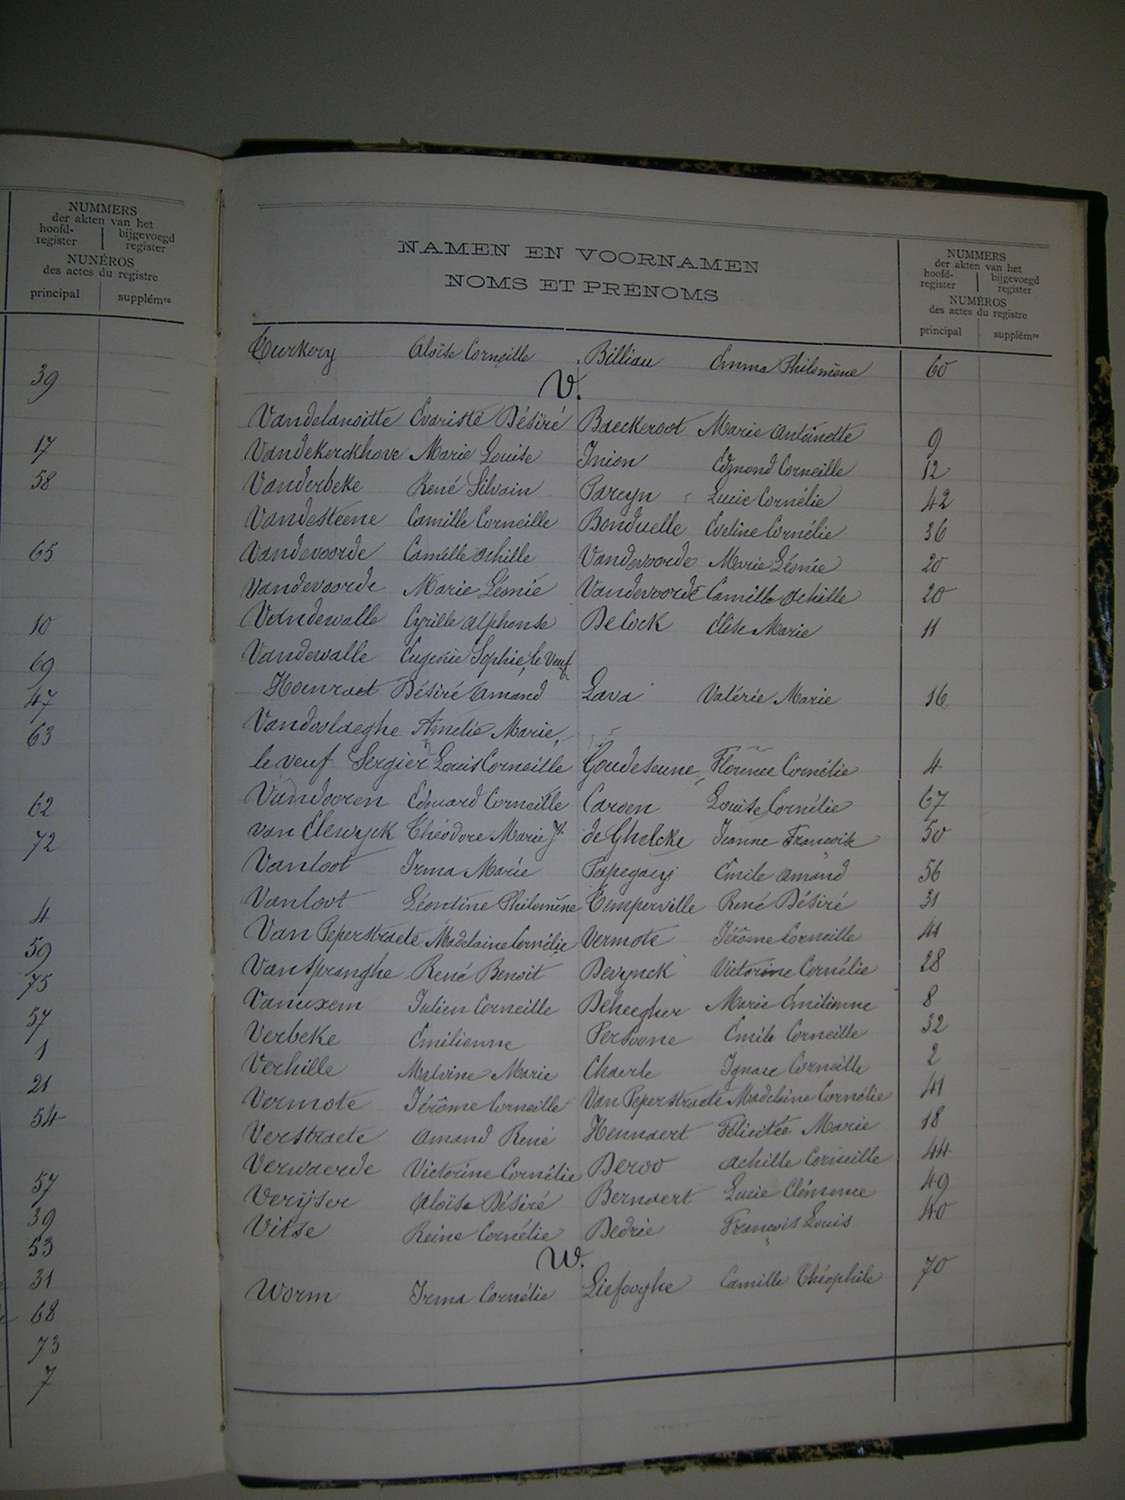 NUMMERS
der akten van het
hoofd-register bijgevoegd register
NUNÉROS
des actes du registre
principal supplémre
39
17
58
65
10
69
47
63
62
72
4
59
75
57
1
21
54
57
39
53
31
68
73
7
NAMEN EN VOORNAMEN
NOMS ET PRÉNOMS
NUMMERS
der akten van het
hoofd-register bijgevoegd register
NUMÉROS
des actes du registre
principal supplémre
Turkery Aloïse Corneille Billiau Emma Philomène 60
V.
Vandelanoitte Evariste Désiré Baeckeroot Marie Antoinette 9
Vandekerckhove Marie Louise Inion Edmond Corneille 12
Vanderbeke René Silvain Pareyn Lucie Cornélie 42
Vandesteene Camille Corneille Bonduelle Eveline Cornélie 36
Vandevoorde Camille Achille Vandevoorde Marie Léonie 20
Vandevoorde Marie Léonie Vandevoorde Camille Achille 20
Vandewalle Cyrille Alphonse Delock Elise Marie 11
Vandewalle Eugenie Sophie, le Veuf
Désiré Amand Lava Valérie Marie 16
Vandoolaeghe Amelie Marie,
le veuf Sergier Louis Corneille Goudeseune Florence Cornélie 4
Vandooren Edouard Corneille Caroen Louise Cornélie 67
van Elewyck Théodore Marie Jh de Ghelcke Jeanne Francoise 50
Vanloot Irma Marie Papegaeij Emile Amand 56
Vanloot Léontine Philomène Temperville René Désiré 31
Van Peperstraete Madelaine Cornélie Vermote Jérôme Corneille 41
Vanspranghe René Benoit Devynck Victorine Cornélie 28
Vanuxem Julien Corneille Deheegher Marie Emilienne 8
Verbeke Emilienne Persoone Emile Corneille 32
Verhille Malvine Marie Chaerle Ignace Corneille 2
Vermote Jérôme Corneille Van Peperstraete Madelaine Cornélie 41
Verstraete Amand René Hennaert Félicitée Marie 18
Verwaerde Victorine Cornélie Deroo Achille Corneille 44
Verijser Aloïse Désiré Bernaert Lucie Clémence 49
Vitse Reine Cornélie Dedrie François Louis 40
W.
Worm Irma Cornélie Liefooghe Camille Théophile 70